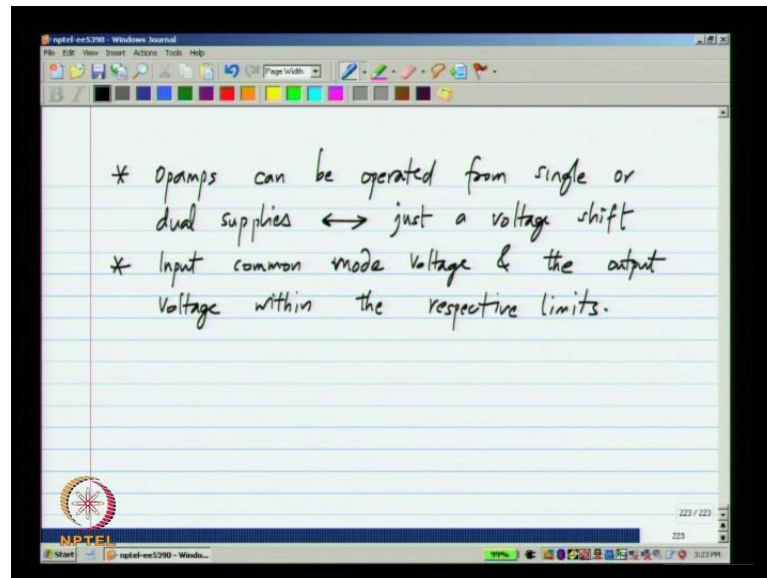 nptel-ee5390 - Windows Journal
File Edit View Insert Actions Tools Help
Page Width
B I
* Opamps can be operated from single or
dual supplies ↔ just a voltage shift
* Input common mode voltage & the output
voltage within the respective limits.
223 / 223
223
NPTEL
Start nptel-ee5390 - Windo... 99% 3:23 PM